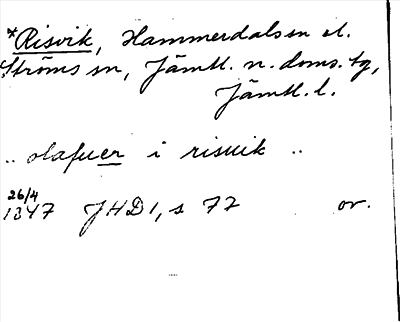 *Risvik, Hammerdals sn el.
Ströms sn, Jämtl. n. doms. tg,
Jämtl. l.
.. olafuer i risuik ..
26/4
1347 JHD 1, s 77 or.